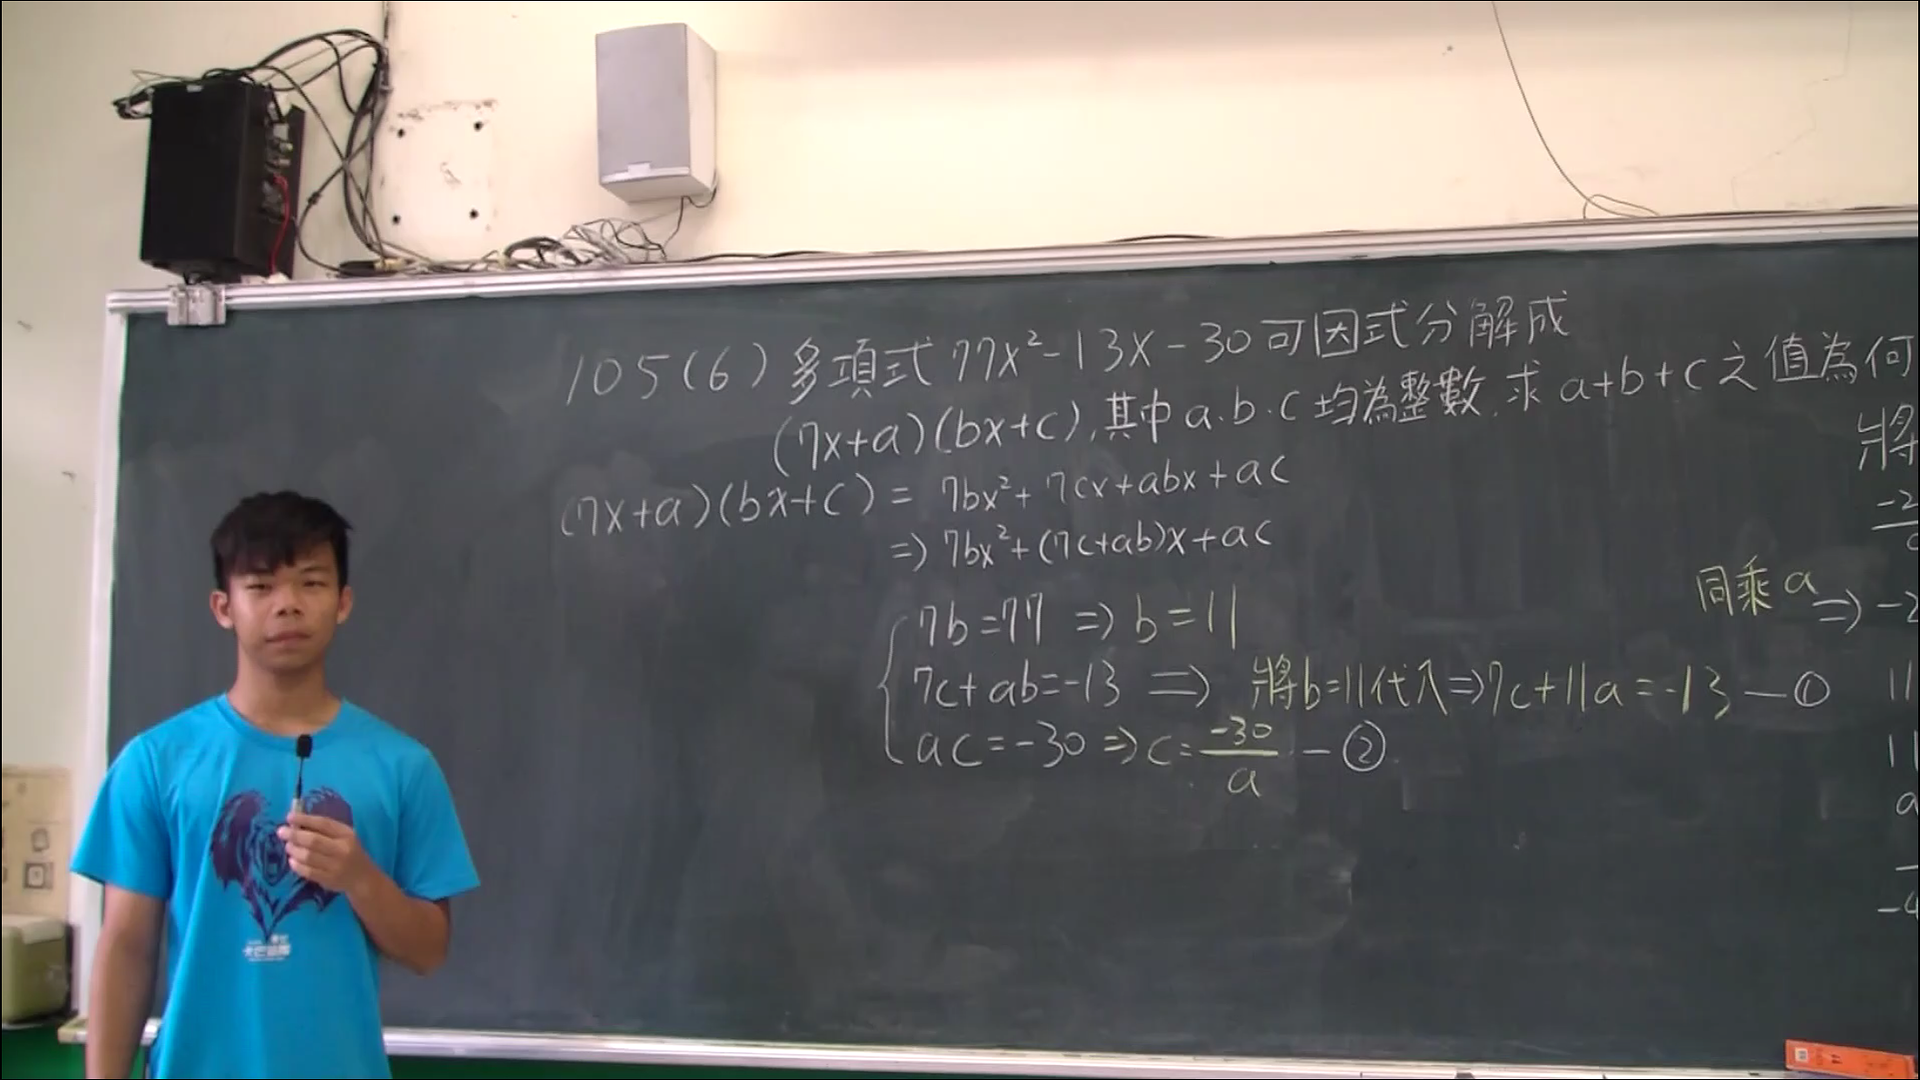 105(6) 多項式 77x²-13x-30 可因式分解成
(7x+a)(bx+c),其中 a.b.c 均為整數,求 a+b+c 之值為何
將
(7x+a)(bx+c) = 7bx²+7cx+abx+ac
-2
=> 7bx²+(7c+ab)x+ac
同乘 a => -2
7b=77 => b=11
7c+ab=-13 => 將b=11代入=>7c+11a=-13 —①
11
ac=-30 => c=-30/a —②
11
a
-4